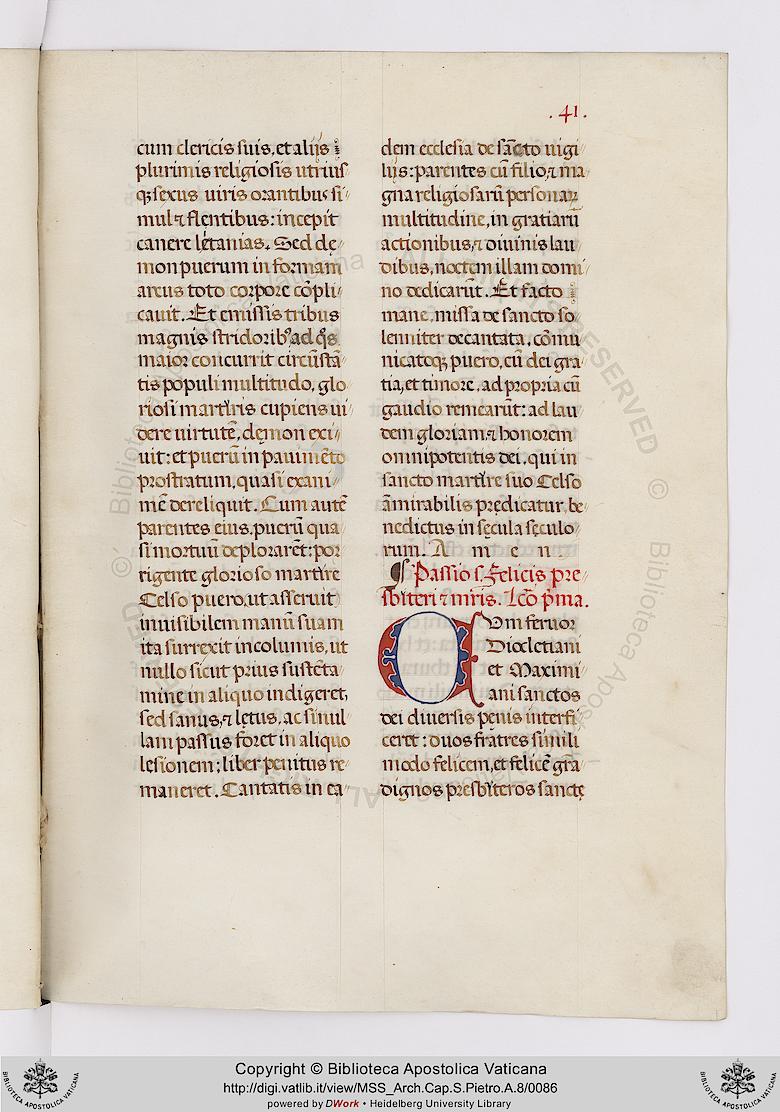 . 41 .
cum clericis suis, et alijs
plurimis religiosis utrius
qꝫ sexus viris orantibus si
mul ⁊ flentibus: incepit
canere lętanias. Sed dę
mon puerum in formam
arcus toto corpore cōpli
cauit. Et emissis tribus
magnis stridoribꝰ ad q̄s
maior concurrit circūstā
tis populi multitudo, glo
riosi martÿris cupiens ui
dere uirtutē, dęmon exi
uit: et puerū in pauimēto
prostratum, quasi exani
mē dereliquit. Cum autē
parentes eius, puerū qua
si mortuū deplorarēt: por
rigente glorioso martÿre
Celso puero, ut asseruit
inuisibilem manū suam
ita surrexit incolumis, ut
nullo sicut prius sustēta
mine in aliquo indigeret,
sed sanus, ⁊ lętus, ac si nul
lam passus foret in aliquo
lesionem; liber penitus re
maneret. Cantatis in ea
dem ecclesia de sācto uigi
lijs: parentes cū filio, ⁊ ma
gna religiosarū personaꝝ
multitudine, in gratiarū
actionibus, ⁊ diuinis lau
dibus, noctem illam domi
no dedicarūt. Et facto
mane, missa de sancto so
lenniter decantata, cōmu
nicatoqꝫ puero, cū dei gra
tia, et timore, ad propria cū
gaudio remearūt: ad lau
dem gloriam, ⁊ honorem
omnipotentis dei, qui in
sancto martÿre suo Celso
āmirabilis prędicatur, be
nedictus in sęcula sęculo
rum. A m e n.
¶ Passio s. Felicis pre
sbiteri ⁊ mr̄is. Lcō pͥma.
CVm feruor
Diocletiani
et Maximi
ani sanctos
dei diuersis pęnis interfi
ceret: duos fratres simili
modo felicem, et felicē gra
dignos presbÿteros sanctę
Copyright © Biblioteca Apostolica Vaticana
http://digi.vatlib.it/view/MSS_Arch.Cap.S.Pietro.A.8/0086
powered by DWork • Heidelberg University Library